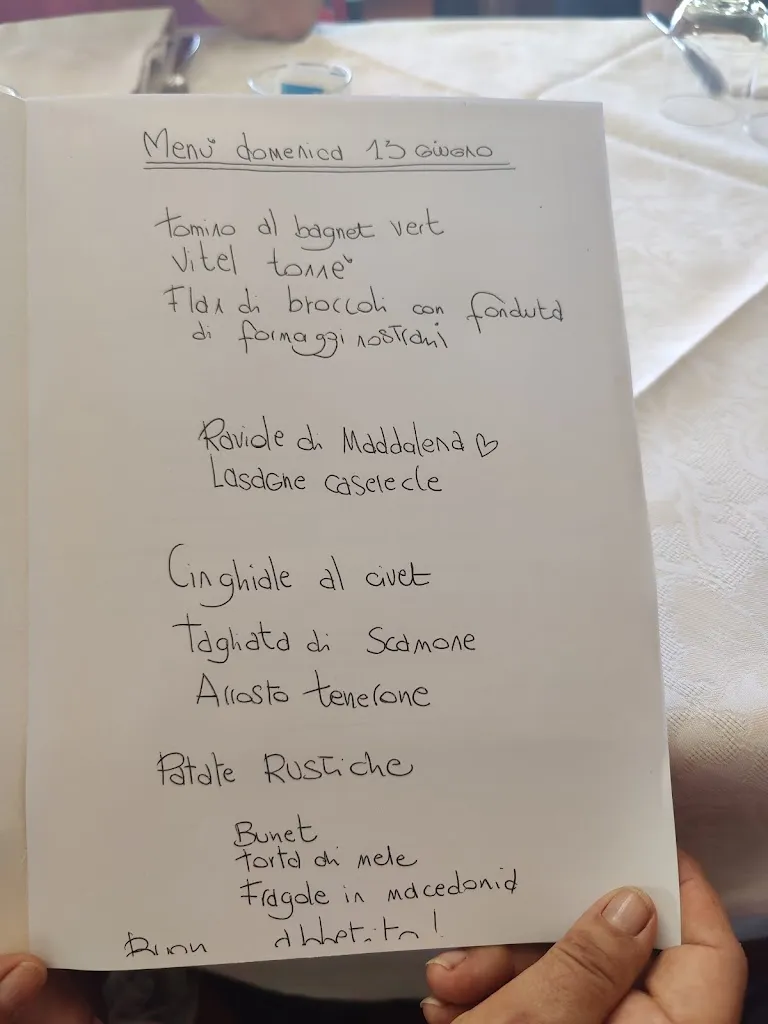 Menù domenica 13 GIUGNO
tomino al bagnet vert
Vitel tonnè
Flan di broccoli con fonduta
di formaggi nostrani
Raviole di Maddalena ♡
Lasagne caserecce
Cinghiale al civet
Tagliata di Scamone
Arrosto tenerone
Patate RUSTiche
Bunet
torta di mele
Fragole in macedonia
Buon appetito!